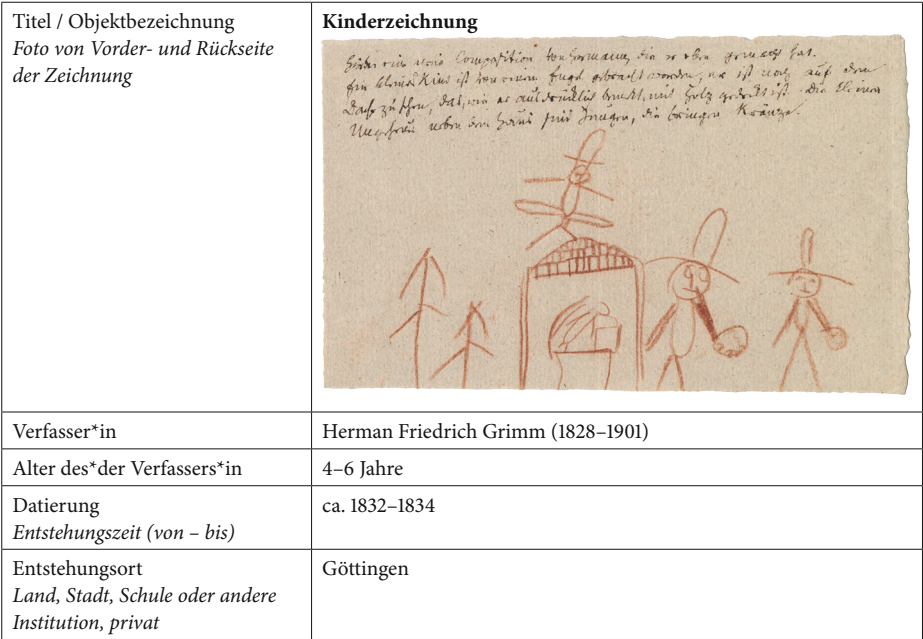 Titel / Objektbezeichnung
Foto von Vorder- und Rückseite
der Zeichnung
Kinderzeichnung
Hier eine neue Composition von Hermann, die er eben gemacht hat.
Ein kleines Kind ist von einem Engel gebracht worden, er ist noch auf dem
Dach zu sehen, das, wie er ausdrücklich bemerkt, mit Holz gedeckt ist. Die kleinen
Ungeheuer neben dem Haus sind Jungen, die bringen Kränze.
Verfasser*in
Herman Friedrich Grimm (1828–1901)
Alter des*der Verfassers*in
4–6 Jahre
Datierung
Entstehungszeit (von – bis)
ca. 1832–1834
Entstehungsort
Land, Stadt, Schule oder andere
Institution, privat
Göttingen